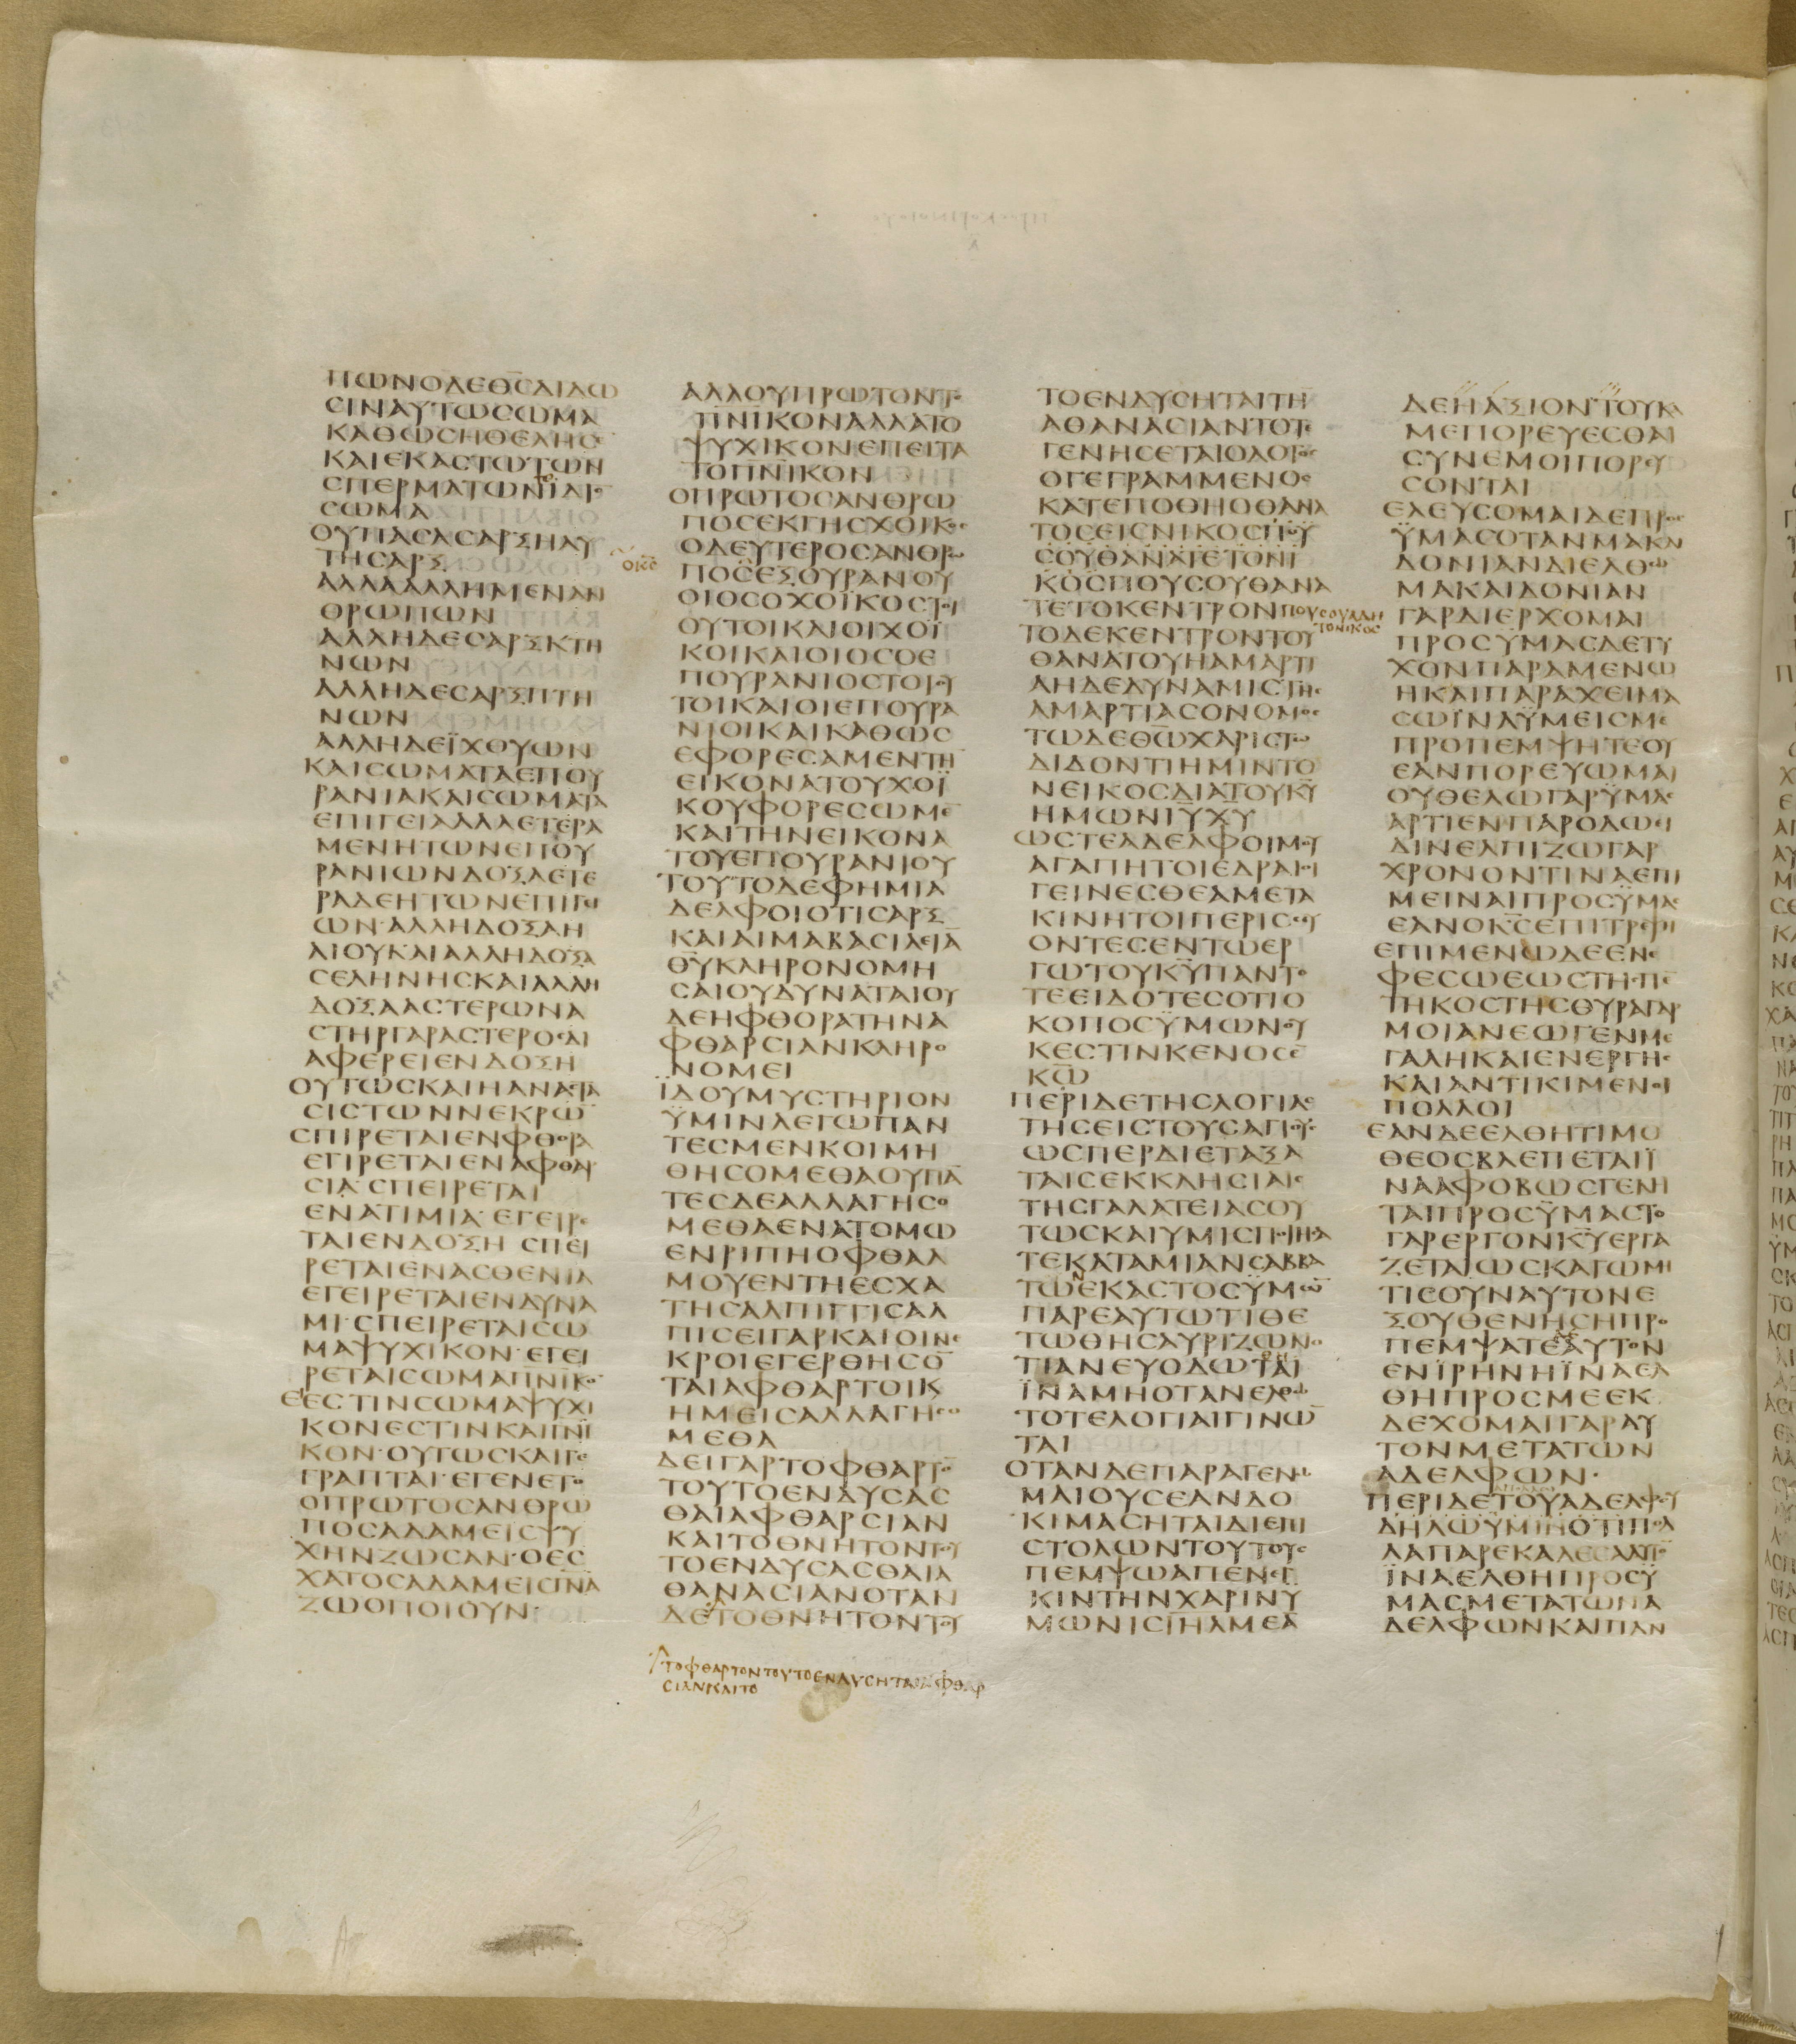 ΠΩΝΟΔΕΘ̅Σ̅ΔΙΔΩ
ΣΙΝΑΥΤΩΣΩΜΑ
ΚΑΘΩΣΗΘΕΛΗΣΕ
ΚΑΙΕΚΑΣΤΩΤΩΝ
ΣΠΕΡΜΑΤΩΝΪΔΙΟ
ΣΩΜΑ
ΟΥΠΑΣΑΣΑΡΞΗΑΥ
ΤΗΣΑΡΞ
ΑΛΛΑΑΛΛΗΜΕΝΑΝ
ΘΡΩΠΩΝ
ΑΛΛΗΔΕΣΑΡΞΚΤΗ
ΝΩΝ
ΑΛΛΗΔΕΣΑΡΞΠΤΗ
ΝΩΝ
ΑΛΛΗΔΕΪΧΘΥΩΝ
ΚΑΙΣΩΜΑΤΑΕΠΟΥ
ΡΑΝΙΑΚΑΙΣΩΜΑΤΑ
ΕΠΙΓΕΙΑΑΛΛΑΕΤΕΡΑ
ΜΕΝΗΤΩΝΕΠΟΥ
ΡΑΝΙΩΝΔΟΞΑΕΤΕ
ΡΑΔΕΗΤΩΝΕΠΙΓΙ
ΩΝ·ΑΛΛΗΔΟΞΑΗ
ΛΙΟΥΚΑΙΑΛΛΗΔΟΞΑ
ΣΕΛΗΝΗΣΚΑΙΑΛΛΗ
ΔΟΞΑΑΣΤΕΡΩΝΑ
ΣΤΗΡΓΑΡΑΣΤΕΡΟΣΔΙ
ΑΦΕΡΕΙΕΝΔΟΞΗ
ΟΥΤΩΣΚΑΙΗΑΝΑΣΤΑ
ΣΙΣΤΩΝΝΕΚΡΩ̅
ΣΠΙΡΕΤΑΙΕΝΦΘΟΡΑ
ΕΓΙΡΕΤΑΙΕΝΑΦΘΑΡ
ΣΙΑ·ΣΠΕΙΡΕΤΑΙ
ΕΝΑΤΙΜΙΑ·ΕΓΕΙΡΕ
ΤΑΙΕΝΔΟΞΗ ΣΠΕΙ
ΡΕΤΑΙΕΝΑΣΘΕΝΙΑ
ΕΓΕΙΡΕΤΑΙΕΝΔΥΝΑ
ΜΙ·ΣΠΕΙΡΕΤΑΙΣΩ
ΜΑΨΥΧΙΚΟΝ·ΕΓΕΙ
ΡΕΤΑΙΣΩΜΑΠ̅Ν̅ΙΚΟ
ΕΙΕΣΤΙΝΣΩΜΑΨΥΧΙ
ΚΟΝΕΣΤΙΝΚΑΙΠ̅Ν̅Ι
ΚΟΝ·ΟΥΤΩΣΚΑΙΓΕ
ΓΡΑΠΤΑΙ·ΕΓΕΝΕΤΟ
ΟΠΡΩΤΟΣΑΝΘΡΩ
ΠΟΣΑΔΑΜΕΙΣΨΥ
ΧΗΝΖΩΣΑΝ·ΟΕΣ
ΧΑΤΟΣΑΔΑΜΕΙΣΠ̅Ν̅Α
ΖΩΟΠΟΙΟΥΝ·
ΑΛΛΟΥΠΡΩΤΟΝΤΟ
Π̅Ν̅ΙΚΟΝΑΛΛΑΤΟ
ΨΥΧΙΚΟΝΕΠΕΙΤΑ
ΤΟΠ̅Ν̅ΙΚΟΝ
ΟΠΡΩΤΟΣΑΝΘΡΩ
ΠΟΣΕΚΓΗΣΧΟΙΚΟΣ
ΟΔΕΥΤΕΡΟΣΑΝΘΡΩ
ΟΚ̅Σ̅
ΠΟΣΕΞΟΥΡΑΝΟΥ
ΟΙΟΣΟΧΟΪΚΟΣΤΟΙ
ΟΥΤΟΙΚΑΙΟΙΧΟΪ
ΚΟΙΚΑΙΟΙΟΣΟΕ
ΠΟΥΡΑΝΙΟΣΤΟΙΟΥ
ΤΟΙΚΑΙΟΙΕΠΟΥΡΑ
ΝΙΟΙΚΑΙΚΑΘΩΣ
ΕΦΟΡΕΣΑΜΕΝΤΗ̅
ΕΙΚΟΝΑΤΟΥΧΟΪ
ΚΟΥΦΟΡΕΣΩΜΕ̅
ΚΑΙΤΗΝΕΙΚΟΝΑ
ΤΟΥΕΠΟΥΡΑΝΙΟΥ
ΤΟΥΤΟΔΕΦΗΜΙΑ
ΔΕΛΦΟΙΟΤΙΣΑΡΞ
ΚΑΙΑΙΜΑΒΑΣΙΛΕΙΑ̅
Θ̅Υ̅ΚΛΗΡΟΝΟΜΗ
ΣΑΙΟΥΔΥΝΑΤΑΙΟΥ
ΔΕΗΦΘΟΡΑΤΗΝΑ
ΦΘΑΡΣΙΑΝΚΛΗΡΟ
ΝΟΜΕΙ
ΪΔΟΥΜΥΣΤΗΡΙΟΝ
ΫΜΙΝΛΕΓΩΠΑΝ
ΤΕΣΜΕΝΚΟΙΜΗ
ΘΗΣΟΜΕΘΑΟΥΠΑ̅
ΤΕΣΔΕΑΛΛΑΓΗΣΟ
ΜΕΘΑΕΝΑΤΟΜΩ
ΕΝΡΙΠΗΟΦΘΑΛ
ΜΟΥΕΝΤΗΕΣΧΑ
ΤΗΣΑΛΠΙΓΓΙΣΑΛ
ΠΙΣΕΙΓΑΡΚΑΙΟΙΝΕ
ΚΡΟΙΕΓΕΡΘΗΣΟ̅
ΤΑΙΑΦΘΑΡΤΟΙΚ
ΗΜΕΙΣΑΛΛΑΓΗΣΟ
ΜΕΘΑ
ΔΕΙΓΑΡΤΟΦΘΑΡΤΟ
ΤΟΥΤΟΕΝΔΥΣΑΣ
ΘΑΙΑΦΘΑΡΣΙΑΝ
ΚΑΙΤΟΘΝΗΤΟΝΤΟΥ
ΤΟΕΝΔΥΣΑΣΘΑΙΑ
ΘΑΝΑΣΙΑΝΟΤΑΝ
ΔΕΤΟΘΝΗΤΟΝΤΟΥ
ΤΟΦΘΑΡΤΟΝΤΟΥΤΟΕΝΔΥΣΗΤΑΙΑΦΘΑΡ
ΣΙΑΝΚΑΙΤΟ
ΤΟΕΝΔΥΣΗΤΑΙΤΗ̅
ΑΘΑΝΑΣΙΑΝΤΟΤΕ
ΓΕΝΗΣΕΤΑΙΟΛΟΓΟΣ
ΟΓΕΓΡΑΜΜΕΝΟΣ
ΚΑΤΕΠΟΘΗΟΘΑΝΑ
ΤΟΣΕΙΣΝΙΚΟΣΠΟΥ
ΣΟΥΘΑΝΑΤΕΤΟΝΙ
ΚΟΣΠΟΥΣΟΥΘΑΝΑ
ΤΕΤΟΚΕΝΤΡΟΝ ΠΟΥΣΟΥΑΔΗ
ΤΟΝΙΚΟΣ
ΤΟΔΕΚΕΝΤΡΟΝΤΟΥ
ΘΑΝΑΤΟΥΗΑΜΑΡΤΙ
ΑΗΔΕΔΥΝΑΜΙΣΤΗΣ
ΑΜΑΡΤΙΑΣΟΝΟΜΟΣ
ΤΩΔΕΘ̅Ω̅ΧΑΡΙΣΤΩ
ΔΙΔΟΝΤΙΗΜΙΝΤΟ
ΝΕΙΚΟΣΔΙΑΤΟΥΚ̅Υ̅
ΗΜΩΝΙ̅Υ̅Χ̅Υ̅
ΩΣΤΕΑΔΕΛΦΟΙΜΟΥ
ΑΓΑΠΗΤΟΙΕΔΡΑΙΟΙ
ΓΕΙΝΕΣΘΕΑΜΕΤΑ
ΚΙΝΗΤΟΙΠΕΡΙΣΣΕΥ
ΟΝΤΕΣΕΝΤΩΕΡ
ΓΩΤΟΥΚ̅Υ̅ΠΑΝΤΟ
ΤΕΕΙΔΟΤΕΣΟΤΙΟ
ΚΟΠΟΣΫΜΩΝΟΥ
ΚΕΣΤΙΝΚΕΝΟΣΕ̅
Κ̅Ω̅
ΠΕΡΙΔΕΤΗΣΛΟΓΙΑΣ
ΤΗΣΕΙΣΤΟΥΣΑΓΙΟΥΣ
ΩΣΠΕΡΔΙΕΤΑΞΑ
ΤΑΙΣΕΚΚΛΗΣΙΑΙΣ
ΤΗΣΓΑΛΑΤΕΙΑΣΟΥ
ΤΩΣΚΑΙΥΜΙΣΠΟΙΗΣΑ
ΤΕΚΑΤΑΜΙΑΝΣΑΒΒΑ
ΤΩΕΚΑΣΤΟΣΫΜΩ̅
ΠΑΡΕΑΥΤΩΤΙΘΕ
ΤΩΘΗΣΑΥΡΙΖΩΝΟ
ΤΙΑΝΕΥΟΔΩΤΑΙ
ΪΝΑΜΗΟΤΑΝΕΛΘΩ
ΤΟΤΕΛΟΓΙΑΙΓΙΝΩ̅
ΤΑΙ
ΟΤΑΝΔΕΠΑΡΑΓΕΝΩ
ΜΑΙΟΥΣΕΑΝΔΟ
ΚΙΜΑΣΗΤΑΙΔΙΕΠΙ
ΣΤΟΛΩΝΤΟΥΤΟΥΣ
ΠΕΜΨΩΑΠΕΝΕΓ
ΚΙΝΤΗΝΧΑΡΙΝΥ
ΜΩΝΙΣΙ̅Η̅ΛΜΕΑ̅
ΔΕΗΑΞΙΟΝΤΟΥΚΑ
ΜΕΠΟΡΕΥΕΣΘΑΙ
ΣΥΝΕΜΟΙΠΟΡΕΥ
ΣΟΝΤΑΙ
ΕΛΕΥΣΟΜΑΙΔΕΠΡΟΣ
ΫΜΑΣΟΤΑΝΜΑΚΑΙ
ΔΟΝΙΑΝΔΙΕΛΘΩ
ΜΑΚΑΙΔΟΝΙΑΝ
ΓΑΡΔΙΕΡΧΟΜΑΙ
ΠΡΟΣΥΜΑΣΔΕΤΥ
ΧΟΝΠΑΡΑΜΕΝΩ
ΗΚΑΙΠΑΡΑΧΕΙΜΑ
ΣΩΪΝΑΫΜΕΙΣΜΕ
ΠΡΟΠΕΜΨΗΤΕΟΥ
ΕΑΝΠΟΡΕΥΩΜΑΙ
ΟΥΘΕΛΩΓΑΡΫΜΑΣ
ΑΡΤΙΕΝΠΑΡΟΔΩΕΙ
ΔΙΝΕΛΠΙΖΩΓΑΡ
ΧΡΟΝΟΝΤΙΝΑΕΠΙ
ΜΕΙΝΑΙΠΡΟΣΫΜΑΣ
ΕΑΝΟΚ̅Σ̅ΕΠΙΤΡΕΨΗ
ΕΠΙΜΕΝΩΔΕΕΝΕ
ΦΕΣΩΕΩΣΤΗΣΠΕ̅
ΤΗΚΟΣΤΗΣΘΥΡΑΓΑΡ
ΜΟΙΑΝΕΩΓΕΝΜΕ
ΓΑΛΗΚΑΙΕΝΕΡΓΗΣ
ΚΑΙΑΝΤΙΚΙΜΕΝΟΙ
ΠΟΛΛΟΙ
ΕΑΝΔΕΕΛΘΗΤΙΜΟ
ΘΕΟΣΒΛΕΠΕΤΑΙΪ
ΝΑΑΦΟΒΩΣΓΕΝΗ
ΤΑΙΠΡΟΣΫΜΑΣΤΟ
ΓΑΡΕΡΓΟΝΚ̅Υ̅ΕΡΓΑ
ΖΕΤΑΙΩΣΚΑΓΩΜΗ
ΤΙΣΟΥΝΑΥΤΟΝΕ
ΞΟΥΘΕΝΗΣΗΠΡΟ
ΠΕΜΨΑΤΕΑΥΤΟΝ
ΕΝΙΡΗΝΗΪΝΑΕΛ
ΘΗΠΡΟΣΜΕΕΚ
ΔΕΧΟΜΑΙΓΑΡΑΥ
ΤΟΝΜΕΤΑΤΩΝ
ΑΔΕΛΦΩΝ·
ΠΕΡΙΔΕΤΟΥΑΔΕΛΦΟΥ
ΔΗΛΩΫΜΙΝΟΤΙΠΟΛ
ΛΑΠΑΡΕΚΑΛΕΣΑΑΥΤΟ̅
ΪΝΑΕΛΘΗΠΡΟΣΫ
ΜΑΣΜΕΤΑΤΩΝΑ
ΔΕΛΦΩΝΚΑΙΠΑΝ